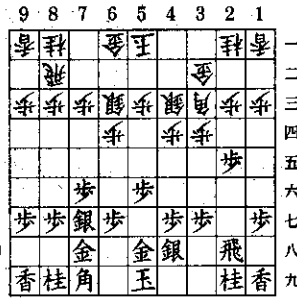 9 8 7 6 5 4 3 2 1
香 桂 金 王 桂 香 一
飛 金 二
歩 歩 歩 銀 歩 銀 角 歩 歩 三
歩 歩 歩 四
歩 五
歩 歩 六
歩 歩 銀 歩 歩 歩 歩 七
金 金 銀 飛 八
香 桂 角 玉 桂 香 九